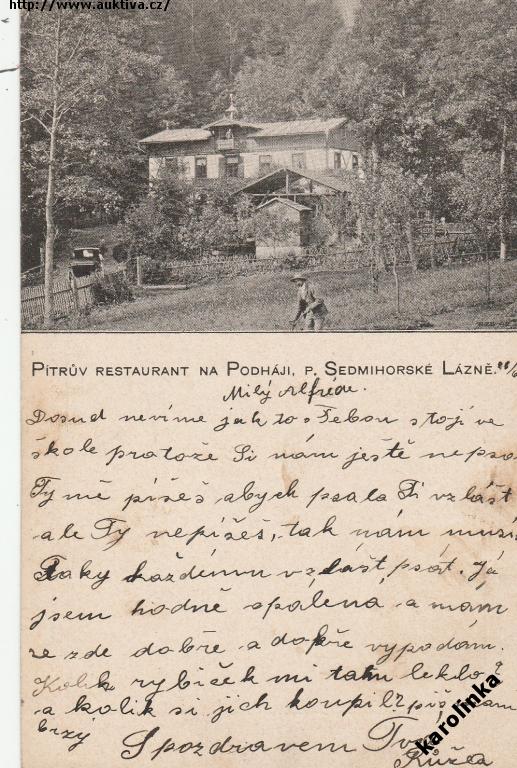 http://www.auktiva.cz/
Pitrův restaurant na Podháji, p. Sedmihorské Lázně.
Milý Alfréde.
Dosud nevíme jak to s Tebou stojí ve
škole protože Si nám ještě nepsa
Ty mě píšeš abych psala Ti vzlášt
ale Ty nepíšeš, tak nám musí
Taky každému vzlášt psát. Já
jsem hodně spálená a mám
se zde dobře a dobře vypadám.
Kolik rybiček mi tam leklo?
a kolik si jich koupil? piš nám
brzy
S pozdravem Tvá
Růža
karolinka